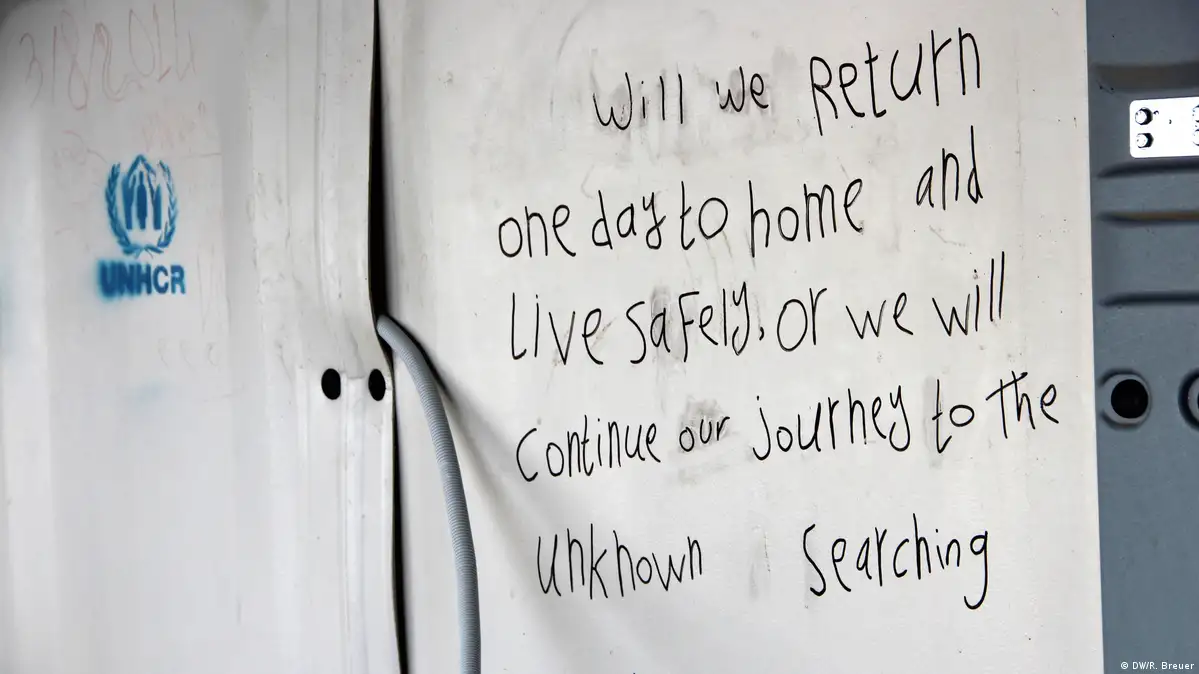 UNHCR
Will we Return
one day to home and
Live safely, or we will
Continue our journey to The
Unknown Searching
© DW/R. Breuer